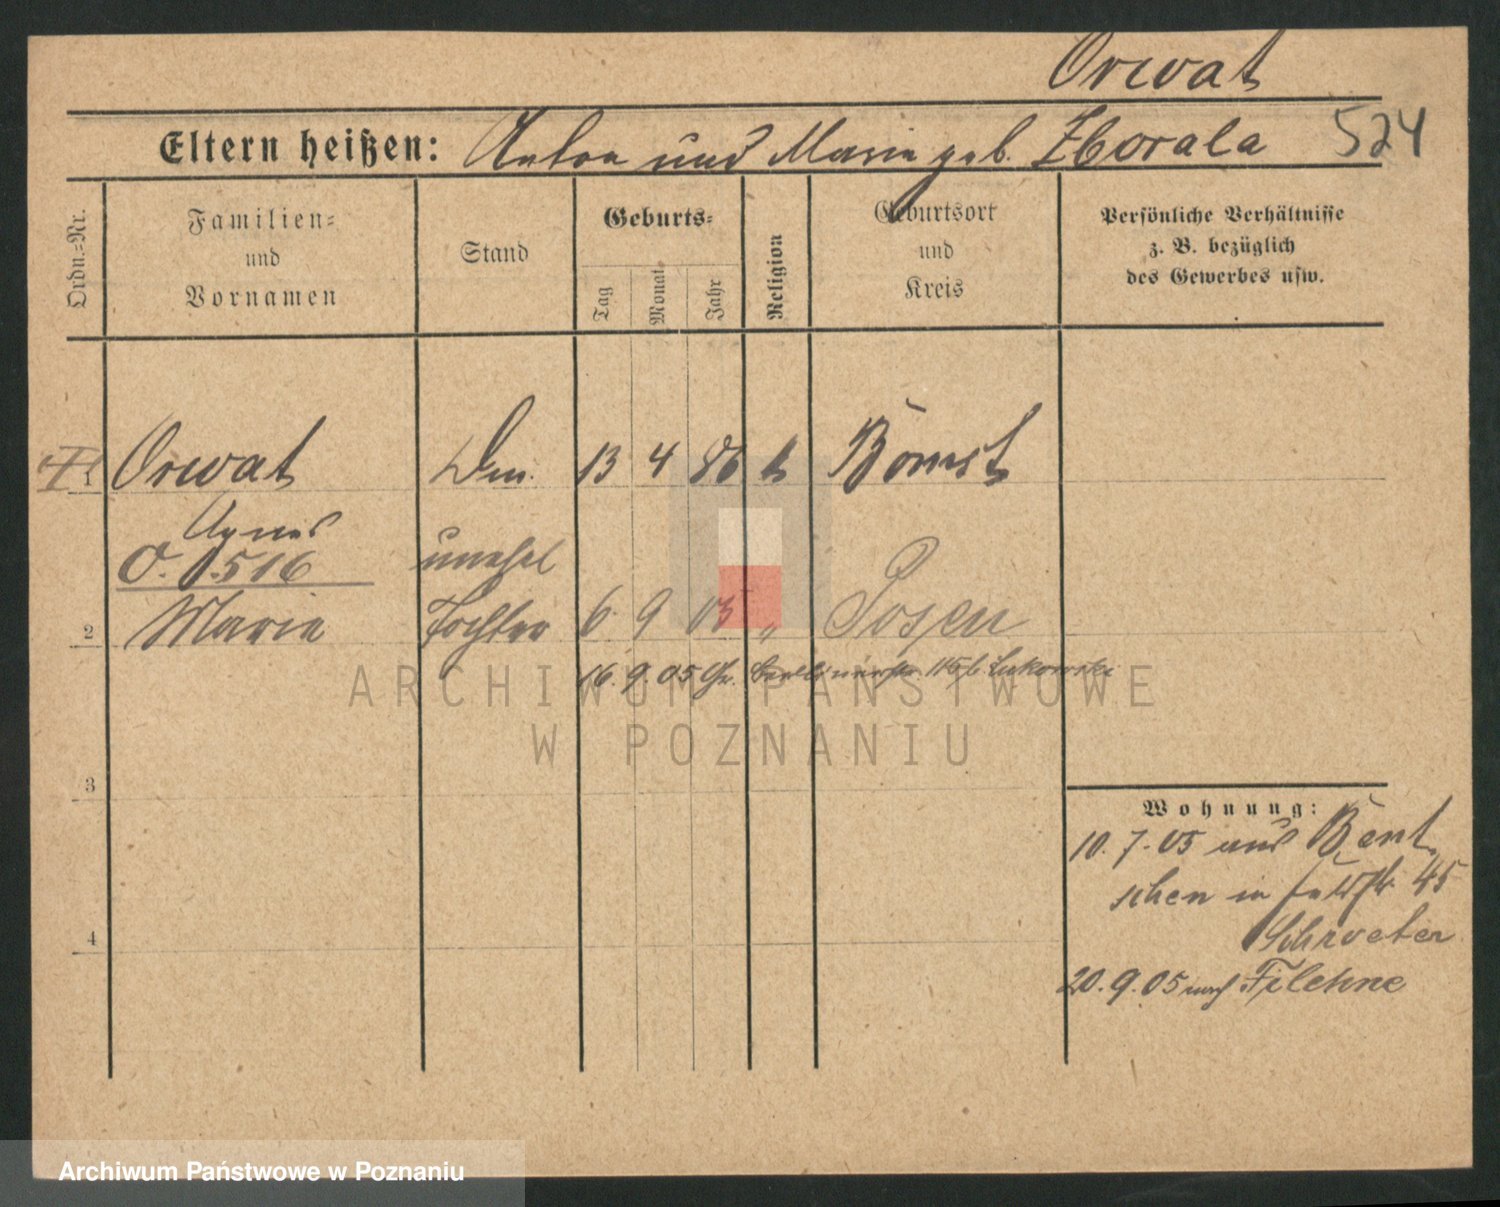 Orwat
Eltern heißen: Anton und Marie geb. Zborala 524
Ordn.-Nr.
Familien-
und
Vornamen
Stand
Geburts-
Tag
Monat
Jahr
Religion
Geburtsort
und
Kreis
Persönliche Verhältnisse
z. B. bezüglich
des Gewerbes usw.
1 Orwat Dm. 13 4 86 k Bomst
Agnes
O. 516 unehel
2 Marie Tochter 6 9 05 „ Posen
16. 9. 05 Gr. Berlinerstr. 115 b. Lukowski
ARCHIWUM PAŃSTWOWE
W POZNANIU
3
Wohnung:
10. 7. 05 aus Bent
schen in 45
Schroeter
4
20. 9. 05 nach Filehne
Archiwum Państwowe w Poznaniu